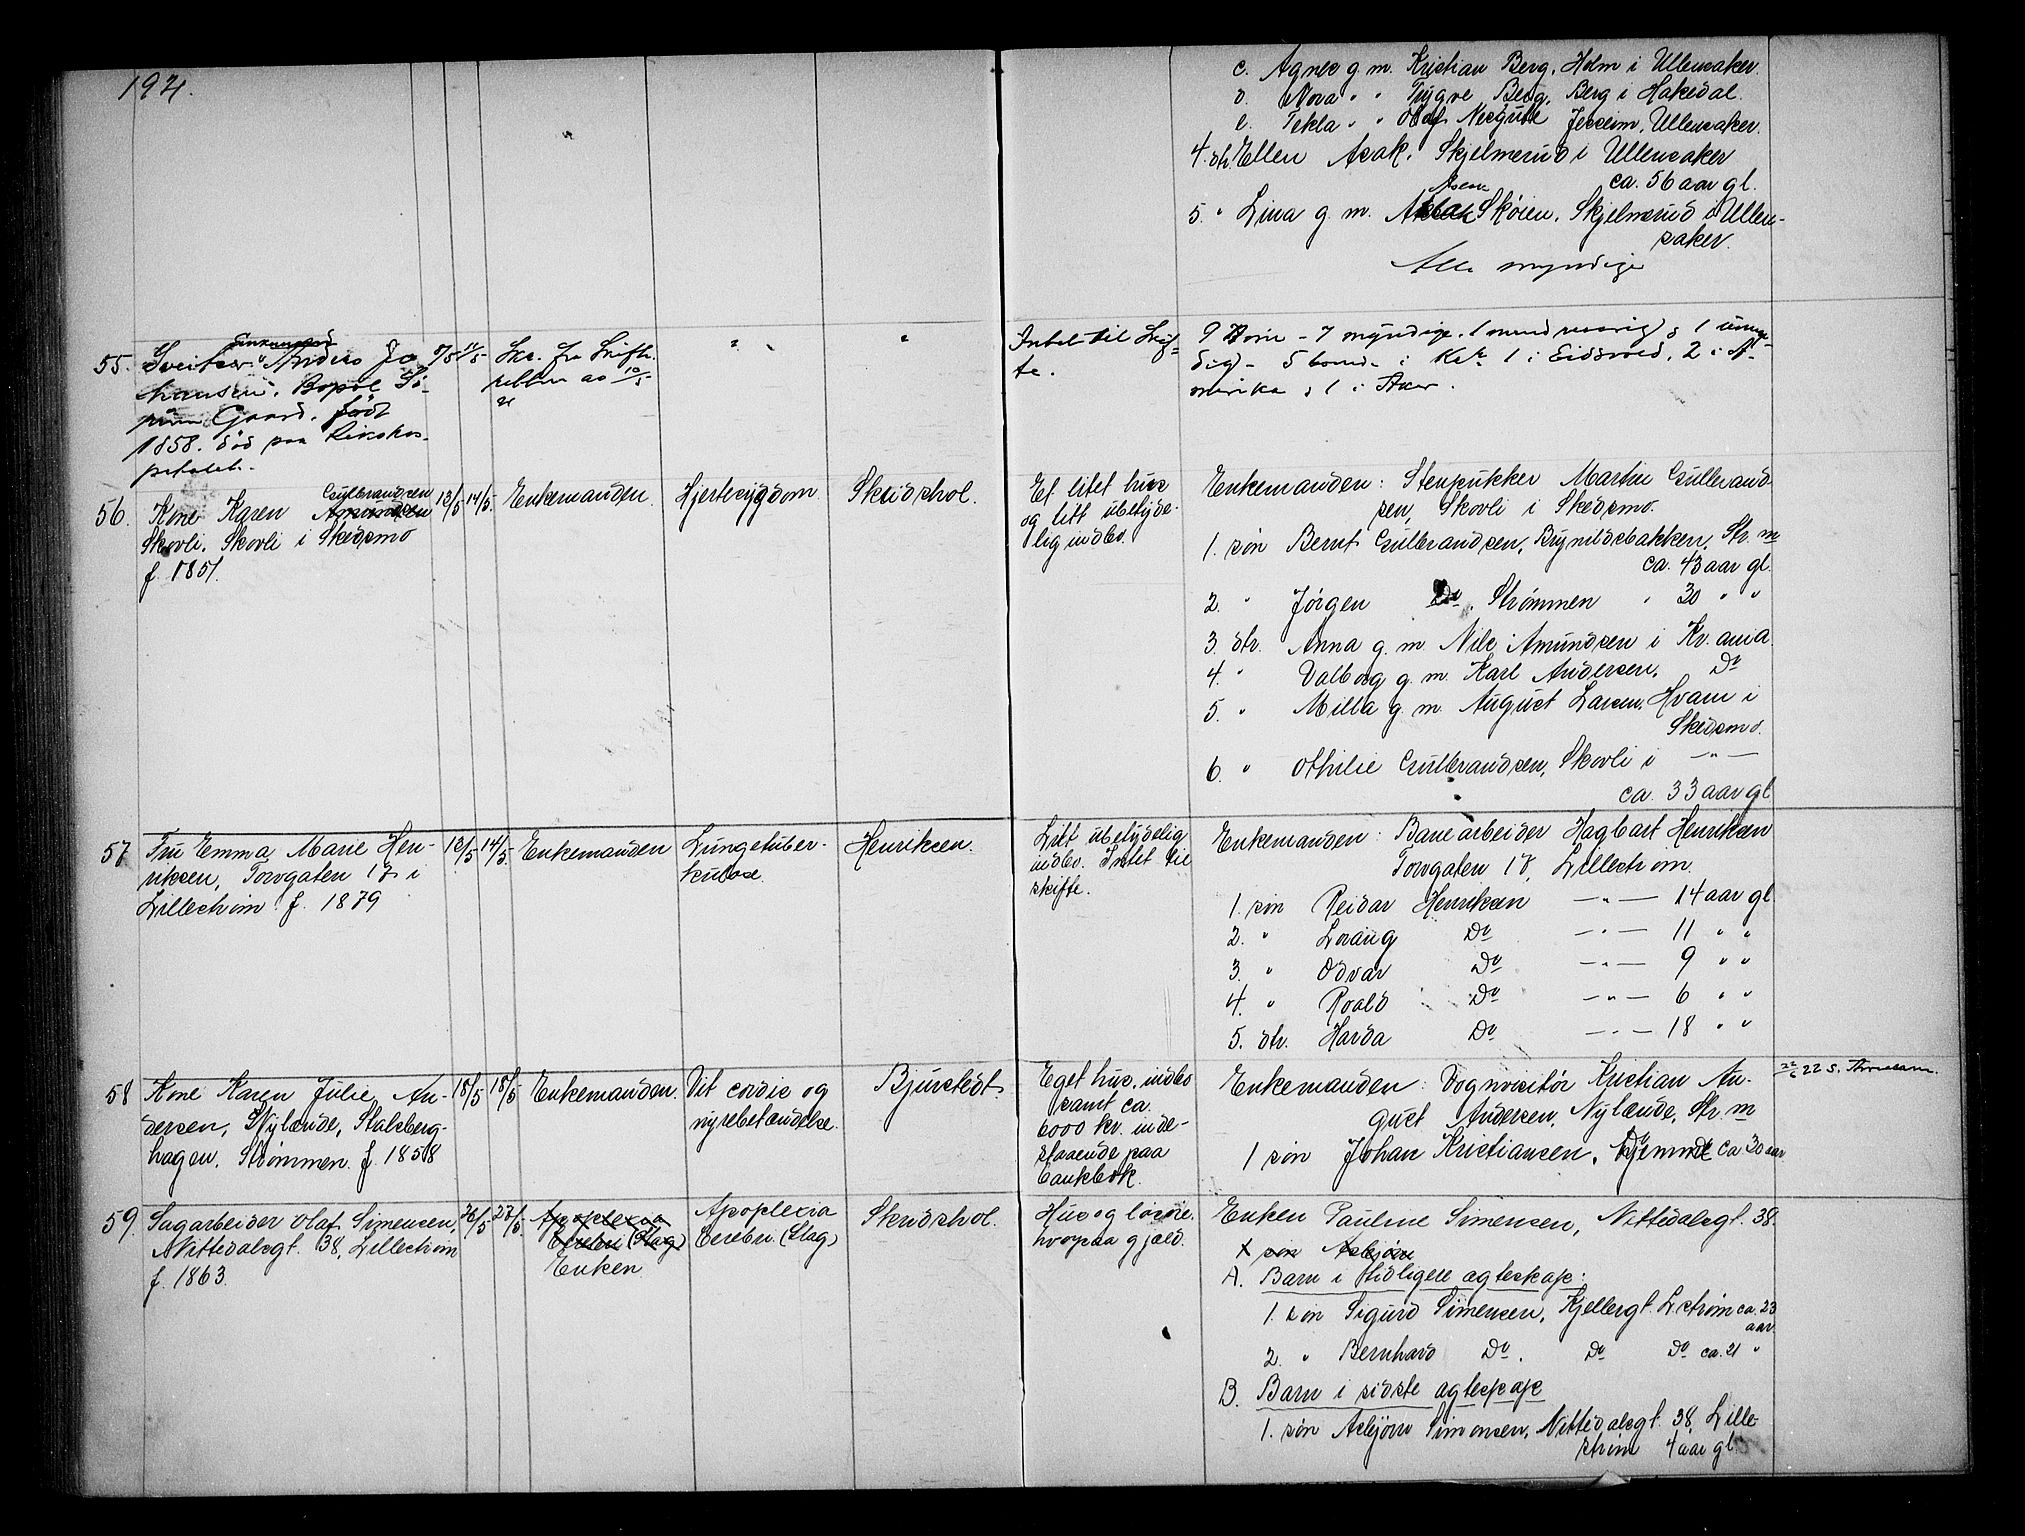 1921.
c. Agnes g. m. Kristian Berg, Holm i Ullensaker.
d. Nora " " Trygve Berg, Berg i Hakedal.
e. Tekla " " Olaf Jesseim, Ullensaker.
4. dtr. Ellen Asak, Skjelmerud i Ullensaker
ca. 56 aar gl.
5. " Lina g. m. Skøien, Skjelmerud i Ullen-
saker.
Alle myndige
55. Sveitser Anders Jo
hansen, Bopæl
Gaard, født
1858. død paa Rikshos-
pitalet.
7/5 11/5
Skr. fra Skifte-
retten av 10/5
21
"
"
Intet til Skif-
te.
9 Børn - 7 myndige, 1 mindreaarig, 1 umyn-
dig - 5 boende i 1 i Eidsvold, 2 i A-
merika, 1 i Aker.
56. Kone Karen Gulbrandsen
Amundsen
Skovli, Skovli i Skedsmo
f. 1851.
13/5 14/5
Enkemanden.
Hjertesygdom.
Skridshol.
Et litet hus
og litt ubetyde-
lig indbo.
Enkemanden: Stenpukker Martin Gulbrand-
sen, Skovli i Skedsmo.
1. søn Bernt Gulbrandsen, Brynildsbakken, Str. m
ca. 43 aar gl.
2. " Jørgen Do, Strømmen " 30 " "
3. dtr. Anna g. m. Nils Amundsen i Kr.ania
4. " Valborg g. m. Karl Andersen, Do
5. " Milla g. m. August Larsen, Hvam i
Skedsmo.
6. " Othilie Gulbrandsen, Skovli i — " —
ca. 33 aar gl
57 Fru Emma Marie Hen-
riksen, Torvgaten 17 i
Lillestrøm f. 1879
12/5 14/5
Enkemanden
Lungetuber-
kulose.
Henriksen.
Litt ubetydelig
indbo. Intet til
skifte.
Enkemanden: Banearbeider Hagbart Henriksen
Torvgaten 17, Lillestrøm.
1. søn Reidar Henriksen — " — 14 aar gl
2. " Lorang Do — " — 11 " "
3. " Odvar Do — " — 9 " "
4. " Roald Do — " — 6 " "
5. dtr. Harda Do — " — 18 " "
58 Kone Karen Julie An-
dersen, Nylænde, Stalsberg-
hagen, Strømmen. f. 1858
18/5 18/5
Enkemanden.
Vit. cordis og
nyrebetændelse.
Bjurstedt.
Eget hus, indbo
samt ca.
6000 kr. inde-
staaende paa
bankbok.
Enkemanden: Vognvisitør Kristian Au-
gust Andersen, Nylænde, Str. m
1 søn Johan Kristiansen, ca 30 aar
22/6 22 S.
59. Sagarbeider Olaf Simensen,
Nittedalsgt. 38, Lillestrøm
f. 1863.
26/5 27/5
Apoplexia
Cerebri (Slag)
Enken
Apoplexia
Cerebri (Slag)
Skridshol.
Hus og løsøre,
hvorpaa gjæld.
Enken Pauline Simensen, Nittedalsgt. 38.
1 søn Asbjørn
A. Barn i tidligere ægteskap:
1. søn Sigurd Simensen, Kjellergt. L.strøm ca. 23
aar.
2. " Bernhard Do. Do Do ca. 21 "
B. Barn i sidste ægteskap
1. søn Asbjørn Simensen, Nittedalsgt. 38, Lille-
strøm 4 aar gl.